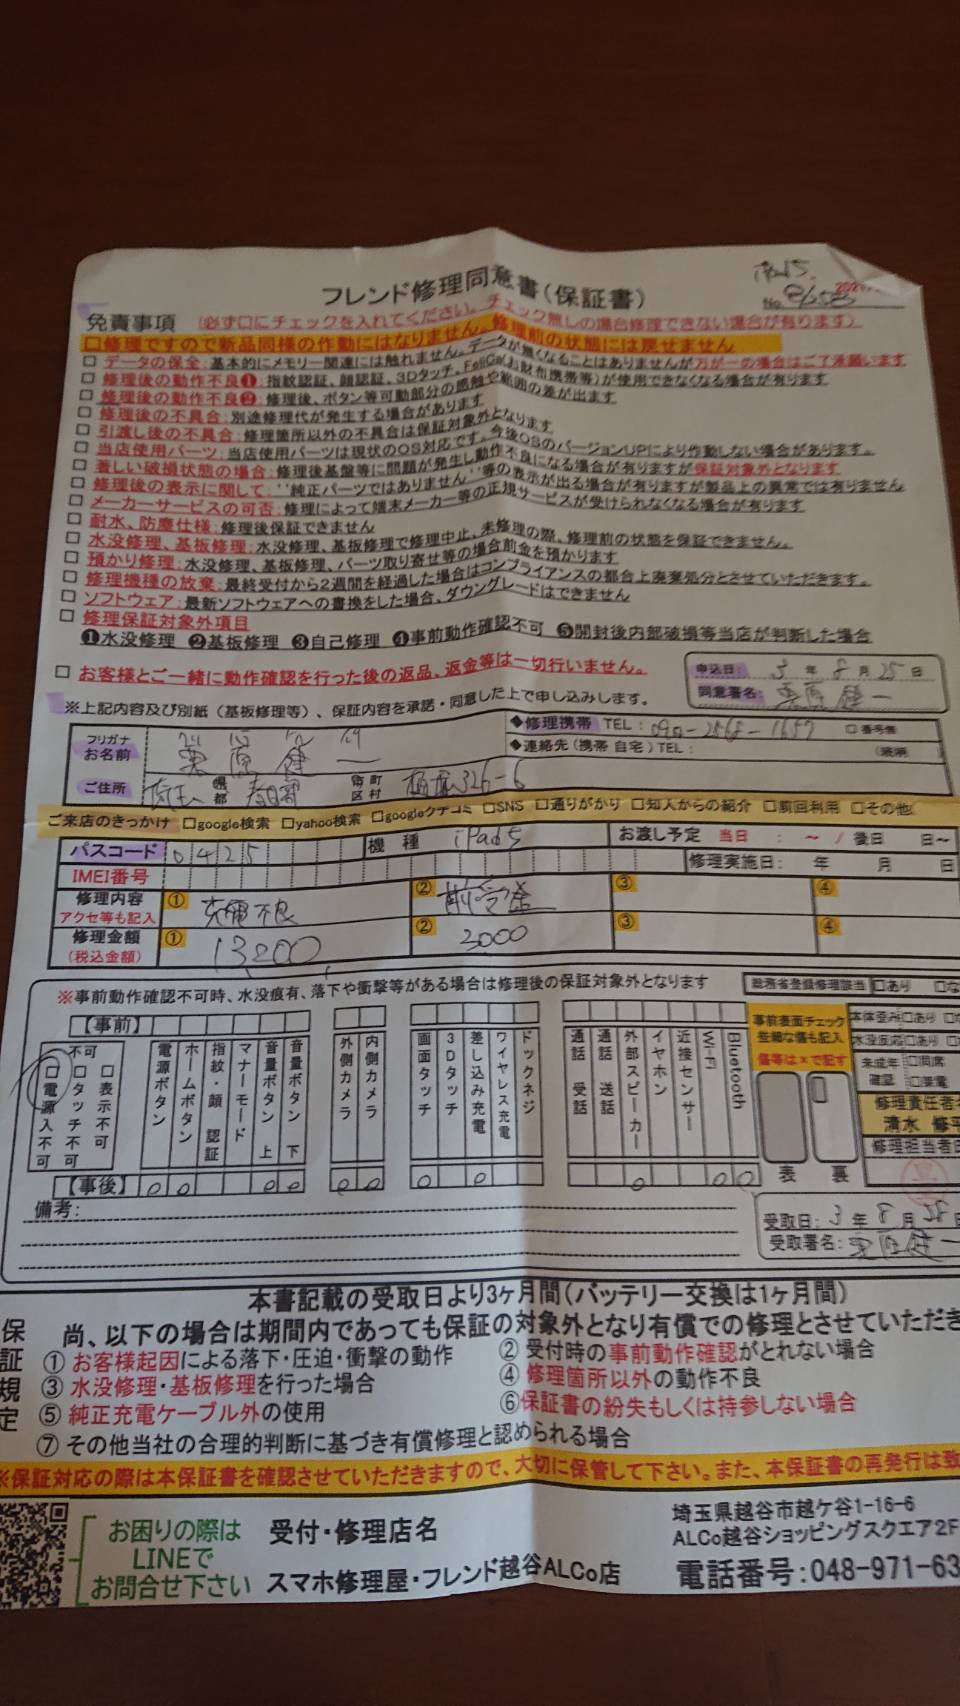 フレンド修理同意書(保証書)
No.
免責事項 (必ず口にチェックを入れてください。チェック無しの場合修理できない場合が有ります)
□修理ですので新品同様の作動にはなりません。修理前の状態には戻せません
□ データの保全:基本的にメモリー関連には触れません。データが無くなることはありませんが万が一の場合はご了承願います
□ 修理後の動作不良❶:指紋認証、顔認証、3Dタッチ、FeliCa(お財布携帯等)が使用できなくなる場合が有ります
□ 修理後の動作不良❷:修理後、ボタン等可動部分の感触や範囲の差が出ます
□ 修理後の不具合:別途修理代が発生する場合があります
□ 引渡し後の不具合:修理箇所以外の不具合は保証対象外となります
□ 当店使用パーツ:当店使用パーツは現状のOS対応です。今後OSのバージョンUPにより作動しない場合があります。
□ 著しい破損状態の場合:修理後基盤等に問題が発生し動作不良になる場合が有りますが保証対象外となります
□ 修理後の表示に関して:''純正パーツではありません''等の表示が出る場合が有りますが製品上の異常では有りません
□ メーカーサービスの可否:修理によって端末メーカー等の正規サービスが受けられなくなる場合が有ります
□ 耐水、防塵仕様:修理後保証できません
□ 水没修理、基板修理:水没修理、基板修理で修理中止、未修理の際、修理前の状態を保証できません。
□ 預かり修理:水没修理、基板修理、パーツ取り寄せ等の場合前金を預かります
□ 修理機種の放棄:最終受付から2週間を経過した場合はコンプライアンスの都合上廃棄処分とさせていただきます。
□ ソフトウェア:最新ソフトウェアへの書換をした場合、ダウングレードはできません
□ 修理保証対象外項目
❶水没修理 ❷基板修理 ❸自己修理 ❹事前動作確認不可 ❺開封後内部破損等当店が判断した場合
□ お客様とご一緒に動作確認を行った後の返品、返金等は一切行いません。
申込日: 3 年 8 月 25 日
同意署名: 栗原健一
※上記内容及び別紙(基板修理等)、保証内容を承諾・同意した上で申し込みします。
フリガナ
お名前 栗原健一
◆修理携帯 TEL: 090-2568-1657 □番号無
◆連絡先(携帯 自宅)TEL:
ご住所 埼玉 都 春日部 市町区村 326-6
ご来店のきっかけ □google検索 □yahoo検索 □googleクチコミ □SNS □通りがかり □知人からの紹介 □前回利用 □その他(
パスコード 0425 機種 iPad5 お渡し予定 当日 : ~ / 後日 日~
IMEI番号 修理実施日: 年 月 日
修理内容 アクセ等も記入 ① 充電不良 ② 前受金 ③ ④
修理金額 (税込金額) ① 13200 ② 3000 ③ ④
※事前動作確認不可時、水没痕有、落下や衝撃等がある場合は修理後の保証対象外となります
総務省登録修理該当 □あり □な
【事前】
不可
□電源入不可
□タッチ不可
□表示不可
電源ボタン
ホームボタン
指紋・顔 認証
マナーモード
音量ボタン 上
音量ボタン 下
外側カメラ
内側カメラ
画面タッチ
3Dタッチ
差し込み充電
ワイヤレス充電
ドックネジ
通話 受話
通話 送話
外部スピーカー
イヤホン
近接センサー
Wi-Fi
Bluetooth
事前裏面チェック
些細な傷も記入
傷等は×で記す
表 裏
本体歪み□あり
水没反応□あり
未成年確認 □同席 □架電
修理責任者
清水 修平
修理担当者
【事後】
備考:
受取日: 3 年 8 月 28 日
受取署名: 栗原健一
本書記載の受取日より3ヶ月間(バッテリー交換は1ヶ月間)
保証規定
尚、以下の場合は期間内であっても保証の対象外となり有償での修理とさせていただき
① お客様起因による落下・圧迫・衝撃の動作
② 受付時の事前動作確認がとれない場合
③ 水没修理・基板修理を行った場合
④ 修理箇所以外の動作不良
⑤ 純正充電ケーブル外の使用
⑥保証書の紛失もしくは持参しない場合
⑦ その他当社の合理的判断に基づき有償修理と認められる場合
※保証対応の際は本保証書を確認させていただきますので、大切に保管して下さい。また、本保証書の再発行は致
お困りの際は
LINEで
お問合せ下さい
受付・修理店名
スマホ修理屋・フレンド越谷ALCo店
埼玉県越谷市越ケ谷1-16-6
ALCo越谷ショッピングスクエア2F
電話番号:048-971-63